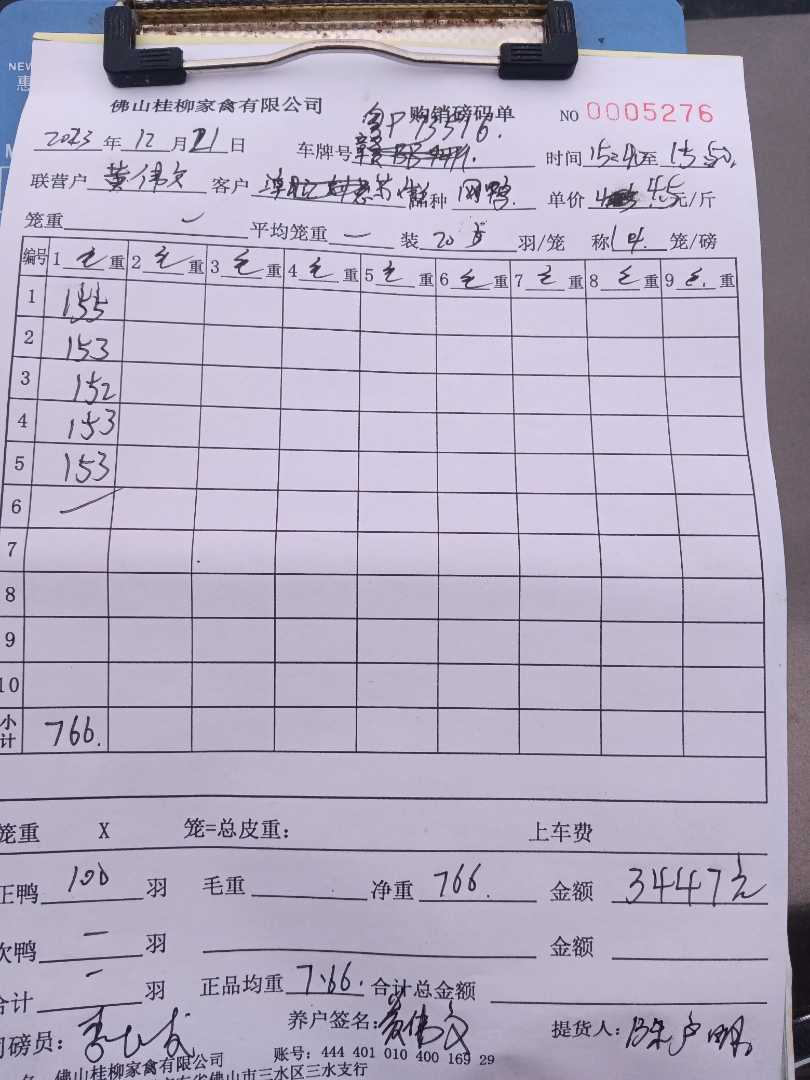 NEW
惠
佛山桂柳家禽有限公司 购销磅码单 NO 0005276
粤P73576.
2023年12月21日 车牌号 时间15:40至15:50.
联营户 黄伟文 客户 品种 单价 4.5元/斤
笼重 — 平均笼重 — 装 20 羽/笼 称 笼/磅
编号 1 毛 重 2 毛 重 3 毛 重 4 毛 重 5 毛 重 6 毛 重 7 毛 重 8 毛 重 9 毛. 重
1 155
2 153
3 152
4 153
5 153
6 —
7
8
9
10
小计 766.
笼重 X 笼=总皮重： 上车费
正鸭 100 羽 毛重 净重 766. 金额 3447元
次鸭 — 羽 金额
合计 — 羽 正品均重 7.66. 合计总金额
司磅员： 养户签名：黄伟文 提货人：
佛山桂柳家禽有限公司 账号：444 401 010 400 169 29
省佛山市三水区三水支行